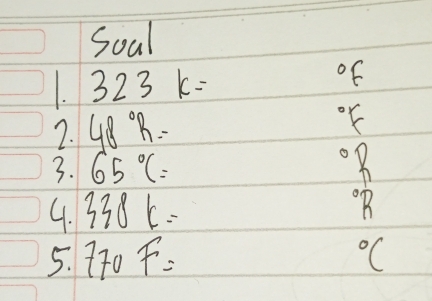 Soal
1. 323 k= °F
2. 48 °R= °F
3. 65 °C= °R
4. 338 k= °R
5. 770 F= °C